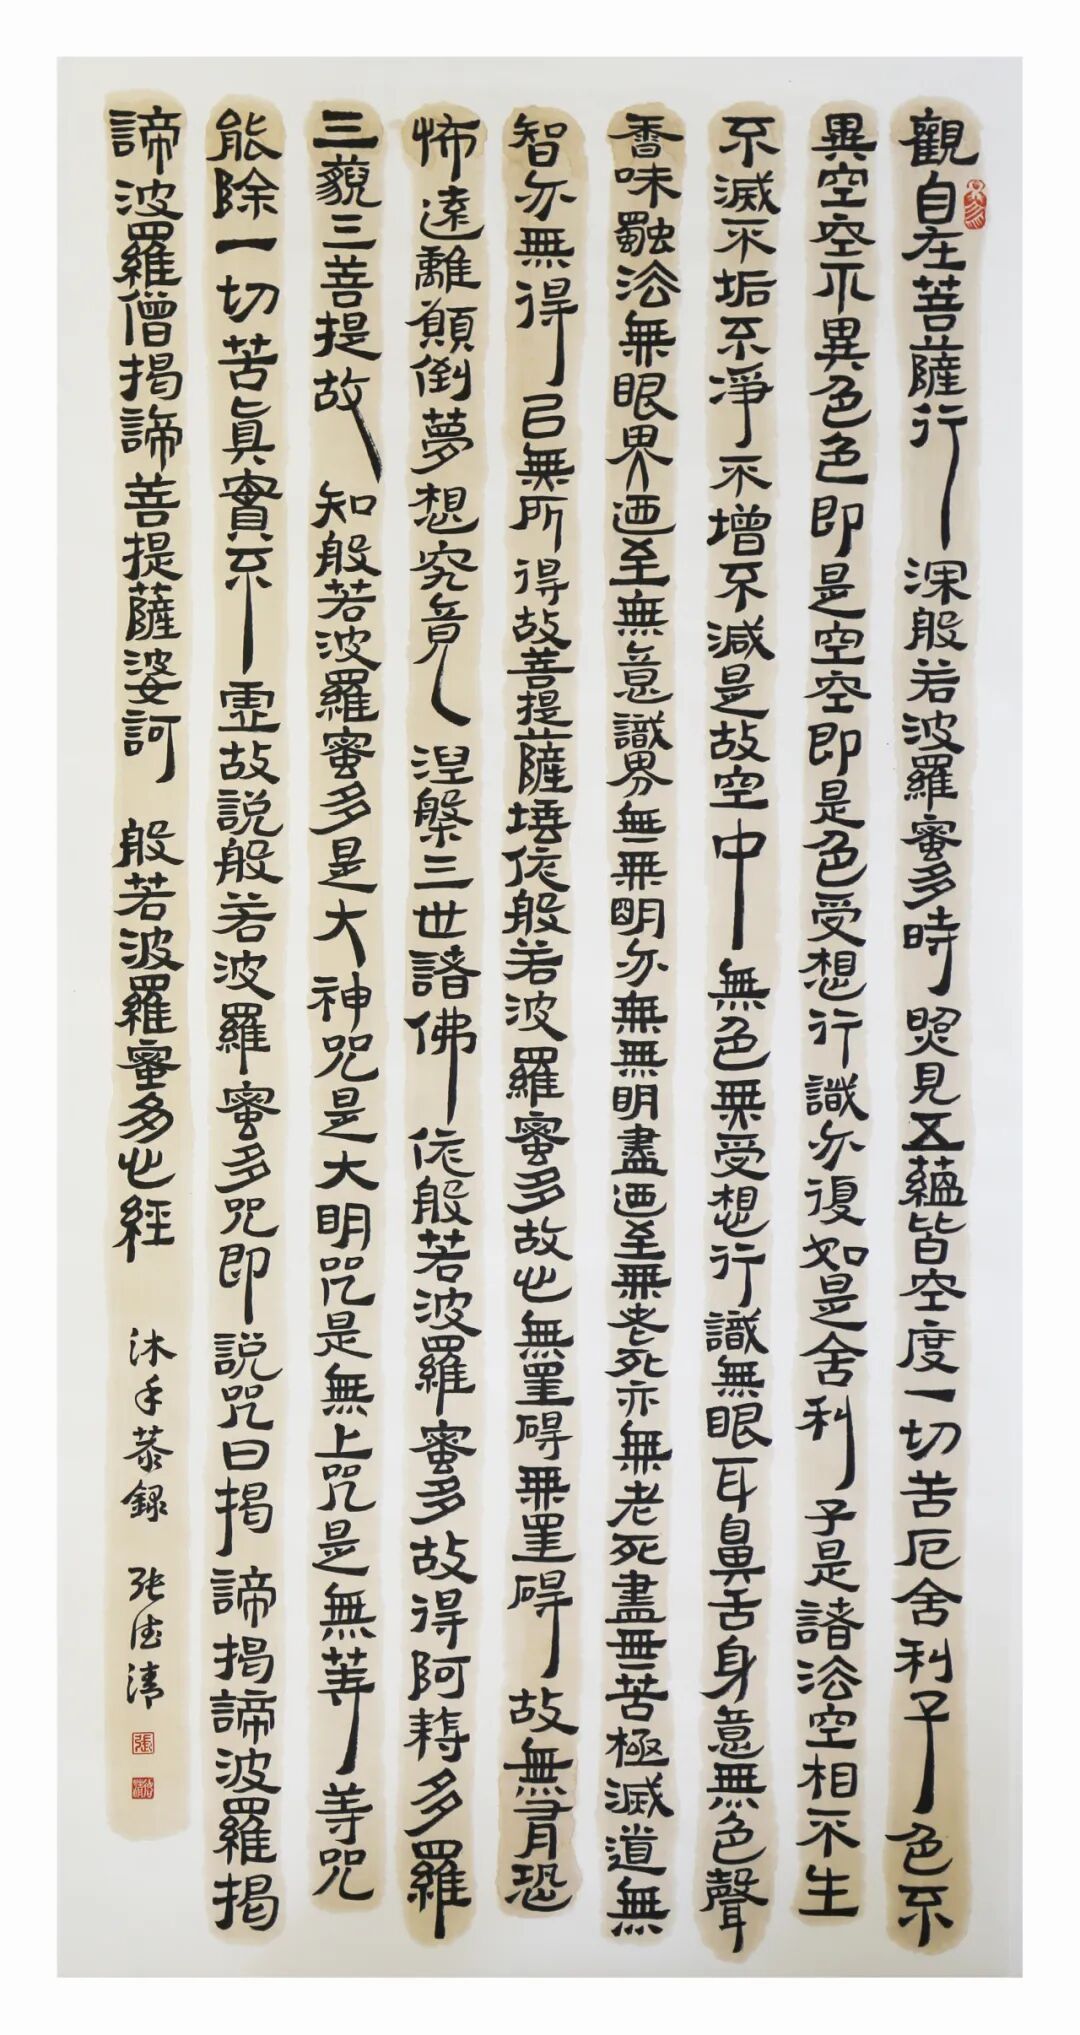 觀自在菩薩行深般若波羅蜜多時照見五蘊皆空度一切苦厄舍利子色不
異空空不異色色即是空空即是色受想行識亦復如是舍利子是諸法空相不生
不滅不垢不淨不增不減是故空中無色無受想行識無眼耳鼻舌身意無色聲
香味觸法無眼界迺至無意識界無無明亦無無明盡迺至無老死亦無老死盡無苦極滅道無
智亦無得㠯無所得故菩提薩埵依般若波羅蜜多故心無罣碍無罣碍故無有恐
怖遠離顛倒夢想究竟涅槃三世諸佛依般若波羅蜜多故得阿耨多羅
三藐三菩提故知般若波羅蜜多是大神咒是大明咒是無上咒是無等等咒
能除一切苦真實不虛故說般若波羅蜜多咒即說咒曰揭諦揭諦波羅揭
諦波羅僧揭諦菩提薩婆訶 般若波羅蜜多心經 沐手恭録 張德清
張